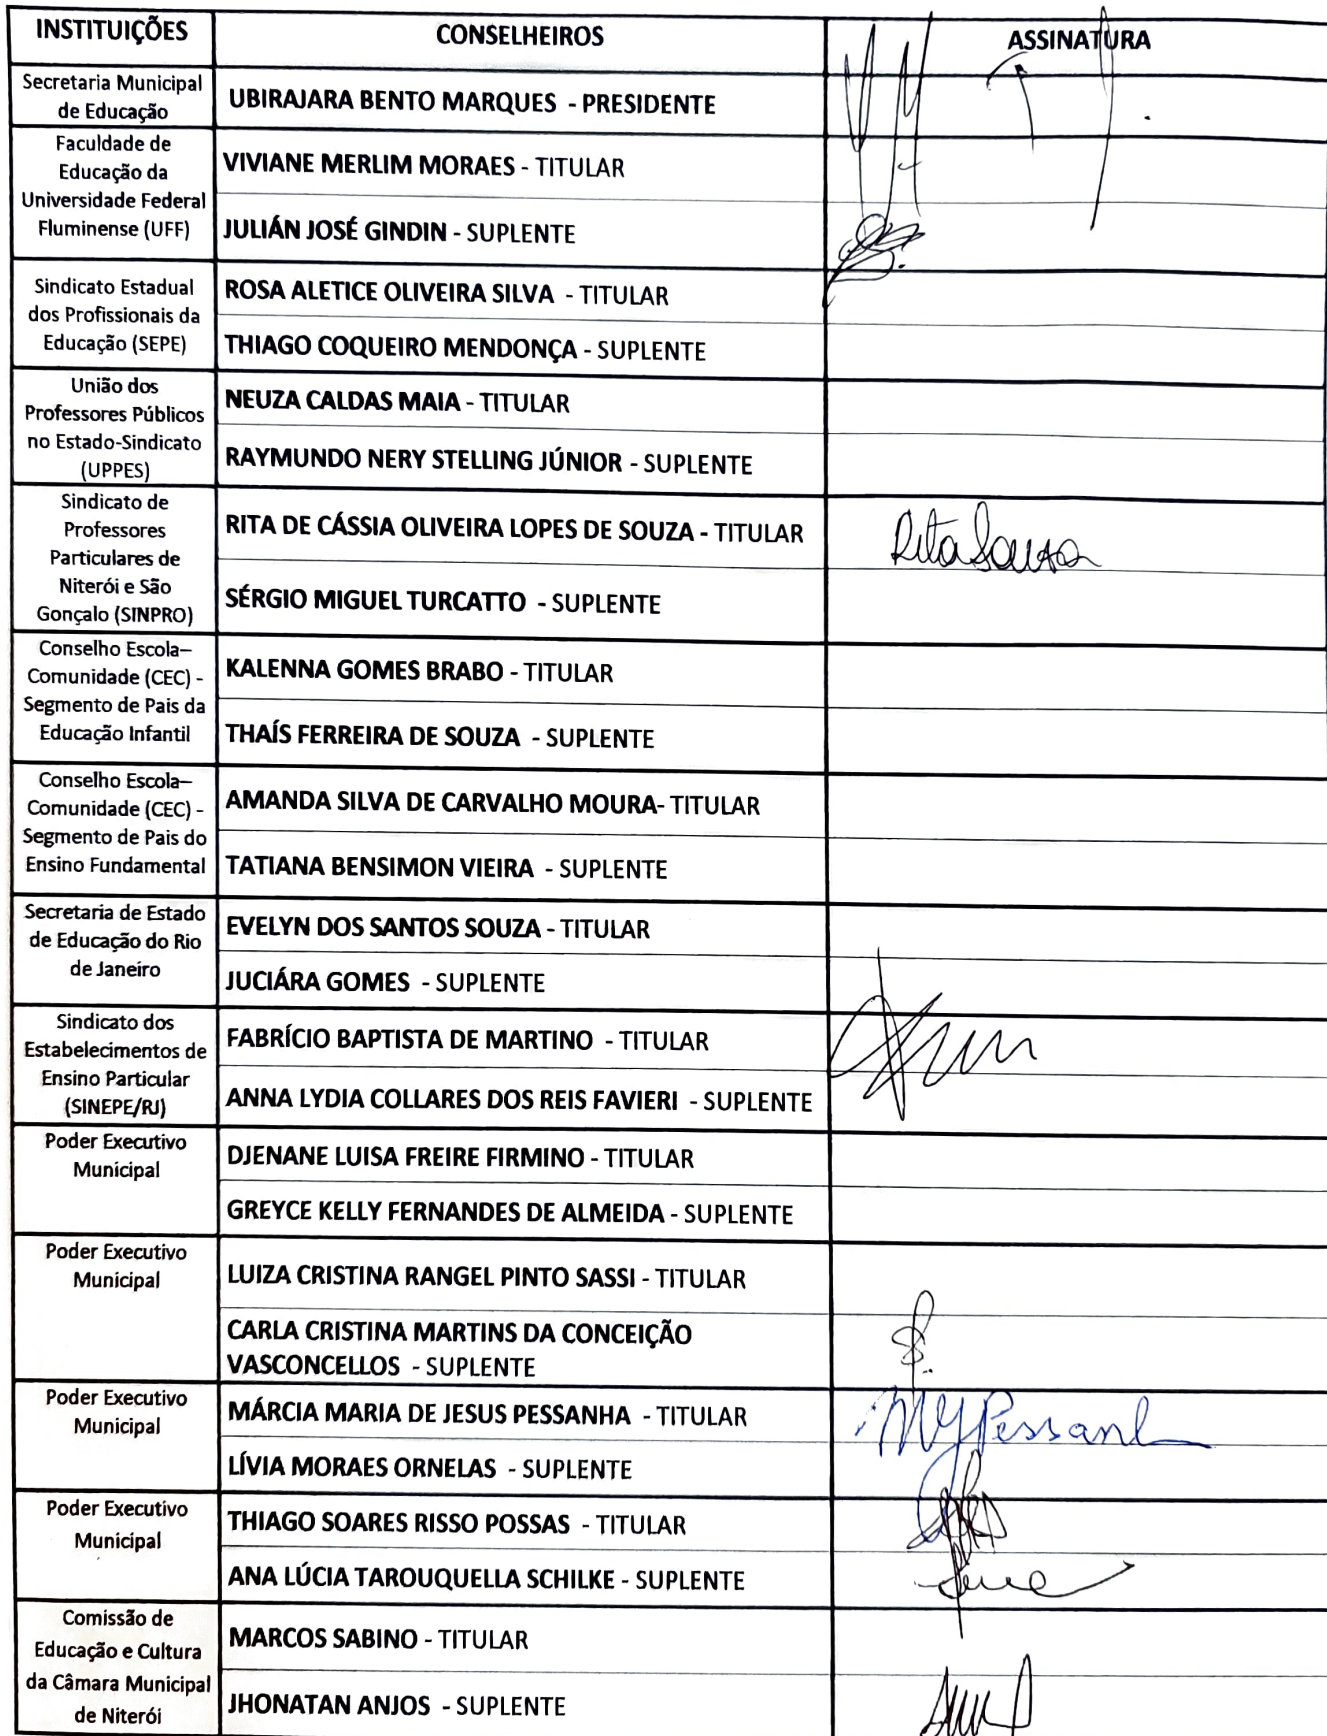 INSTITUIÇÕES CONSELHEIROS ASSINATURA
Secretaria Municipal
de Educação
UBIRAJARA BENTO MARQUES - PRESIDENTE
Faculdade de
Educação da
Universidade Federal
Fluminense (UFF)
VIVIANE MERLIM MORAES - TITULAR
JULIÁN JOSÉ GINDIN - SUPLENTE
Sindicato Estadual
dos Profissionais da
Educação (SEPE)
ROSA ALETICE OLIVEIRA SILVA - TITULAR
THIAGO COQUEIRO MENDONÇA - SUPLENTE
União dos
Professores Públicos
no Estado-Sindicato
(UPPES)
NEUZA CALDAS MAIA - TITULAR
RAYMUNDO NERY STELLING JÚNIOR - SUPLENTE
Sindicato de
Professores
Particulares de
Niterói e São
Gonçalo (SINPRO)
RITA DE CÁSSIA OLIVEIRA LOPES DE SOUZA - TITULAR
Rita Souza
SÉRGIO MIGUEL TURCATTO - SUPLENTE
Conselho Escola–
Comunidade (CEC) -
Segmento de Pais da
Educação Infantil
KALENNA GOMES BRABO - TITULAR
THAÍS FERREIRA DE SOUZA - SUPLENTE
Conselho Escola–
Comunidade (CEC) -
Segmento de Pais do
Ensino Fundamental
AMANDA SILVA DE CARVALHO MOURA- TITULAR
TATIANA BENSIMON VIEIRA - SUPLENTE
Secretaria de Estado
de Educação do Rio
de Janeiro
EVELYN DOS SANTOS SOUZA - TITULAR
JUCIÁRA GOMES - SUPLENTE
Sindicato dos
Estabelecimentos de
Ensino Particular
(SINEPE/RJ)
FABRÍCIO BAPTISTA DE MARTINO - TITULAR
ANNA LYDIA COLLARES DOS REIS FAVIERI - SUPLENTE
Poder Executivo
Municipal
DJENANE LUISA FREIRE FIRMINO - TITULAR
GREYCE KELLY FERNANDES DE ALMEIDA - SUPLENTE
Poder Executivo
Municipal
LUIZA CRISTINA RANGEL PINTO SASSI - TITULAR
CARLA CRISTINA MARTINS DA CONCEIÇÃO
VASCONCELLOS - SUPLENTE
Poder Executivo
Municipal
MÁRCIA MARIA DE JESUS PESSANHA - TITULAR
LÍVIA MORAES ORNELAS - SUPLENTE
Poder Executivo
Municipal
THIAGO SOARES RISSO POSSAS - TITULAR
ANA LÚCIA TAROUQUELLA SCHILKE - SUPLENTE
Comissão de
Educação e Cultura
da Câmara Municipal
de Niterói
MARCOS SABINO - TITULAR
JHONATAN ANJOS - SUPLENTE